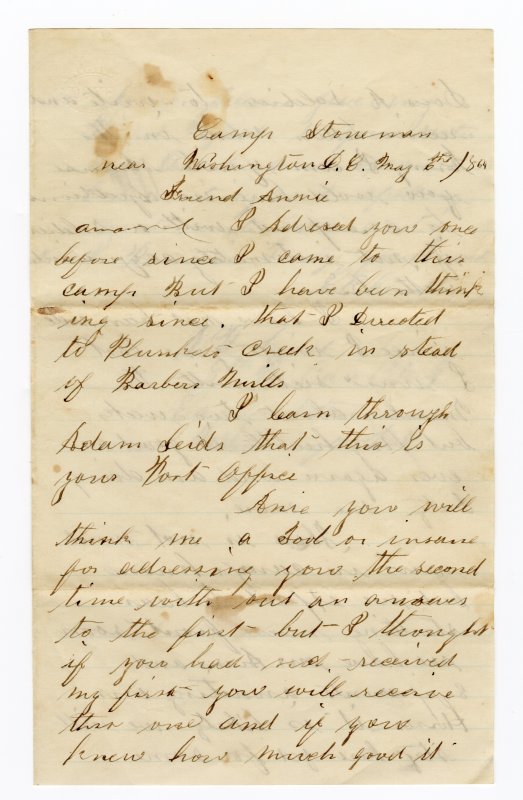 Camp Stoneman
near Washington D.C. May 6th /864
Friend Annie
I Adresed you once
before since I came to this
camp But I have been think
ing since. that I Directed
to Plunkets Creek in stead
of Barbers Mills
I learn through
Adam Seids that this is
your Post Offfice
Anie you will
think me a Fool or insane
for adressing you the second
time with out an answer
to the first but I thought
if you had not received
my first you will receive
this one and if you
knew how much good it